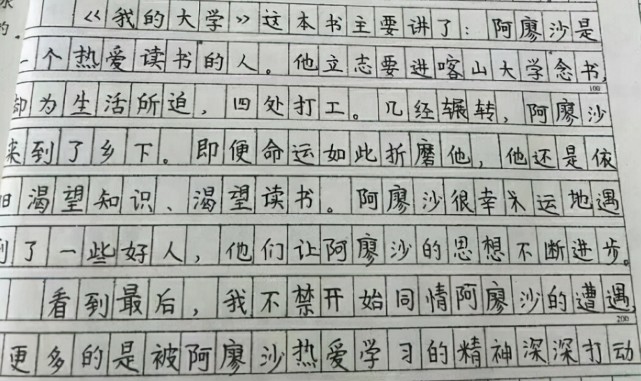 《我的大学》这本书主要讲了：阿廖沙是
一个热爱读书的人。他立志要进喀山大学念书，
100
却为生活所迫，四处打工。几经辗转，阿廖沙
来到了乡下。即便命运如此折磨他，他还是依
旧渴望知识、渴望读书。阿廖沙很幸运地遇
到了一些好人，他们让阿廖沙的思想不断进步。
看到最后，我不禁开始同情阿廖沙的遭遇，
200
更多的是被阿廖沙热爱学习的精神深深打动